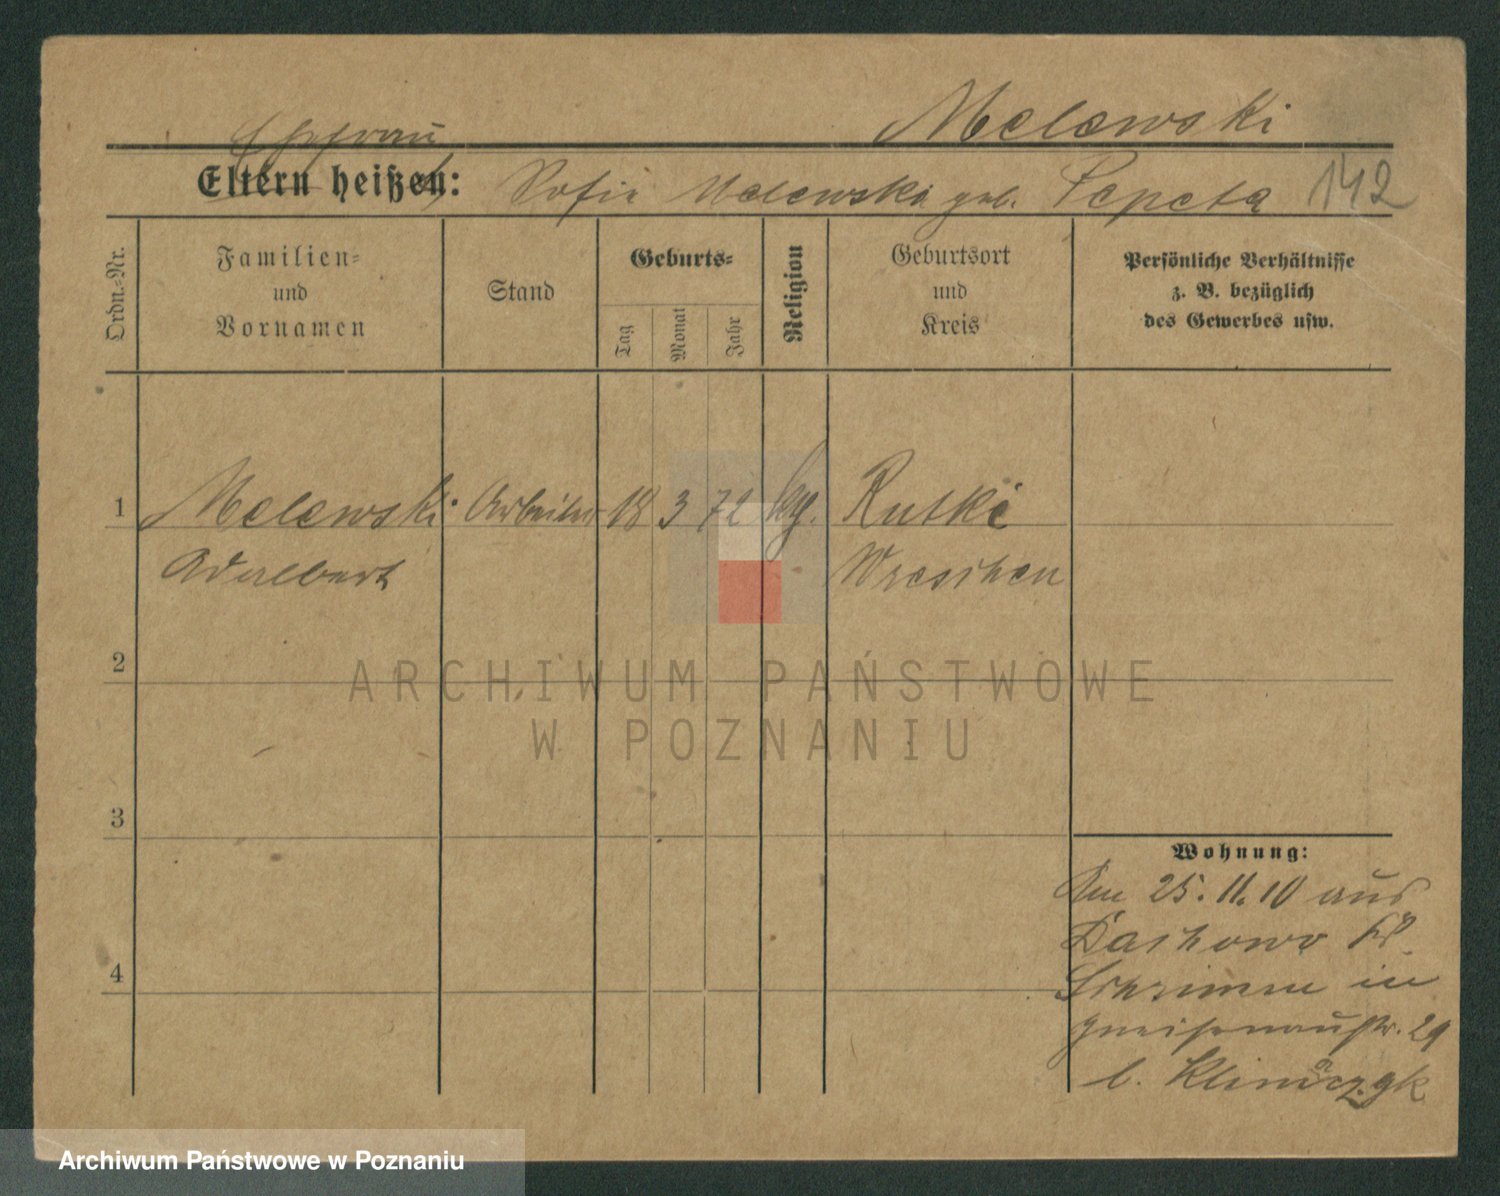 Melewski
Ehefrau
Eltern heißen: Sofie Melewska geb. Pepeta 142
Ordn.-Nr.
Familien-
und
Vornamen
Stand
Geburts-
Tag
Monat
Jahr
Religion
Geburtsort
und
Kreis
Persönliche Verhältnisse
z. B. bezüglich
des Gewerbes usw.
1 Melewski Arbeiter 18 3 72 kg. Rutki
Adalbert Wreschen
2
3
4
Wohnung:
Am 25.11.10 aus
Dachowo Kr.
Schrimm in
Gneisenaustr. 29
b.
ARCHIWUM PAŃSTWOWE
W POZNANIU
Archiwum Państwowe w Poznaniu